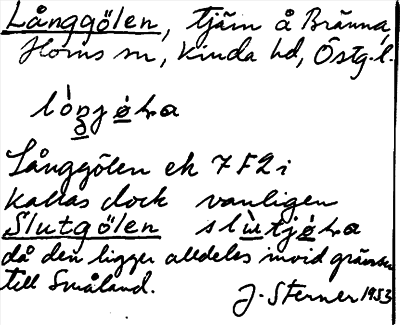 Långgölen, tjärn å Bränna,
Horns sn, Kinda hd, Östg. l.
Långgölen ek 7 F 2 i
kallas dock vanligen
Slutgölen
då den ligger alldeles invid gränsen
till Småland.
J. Sterner 1933